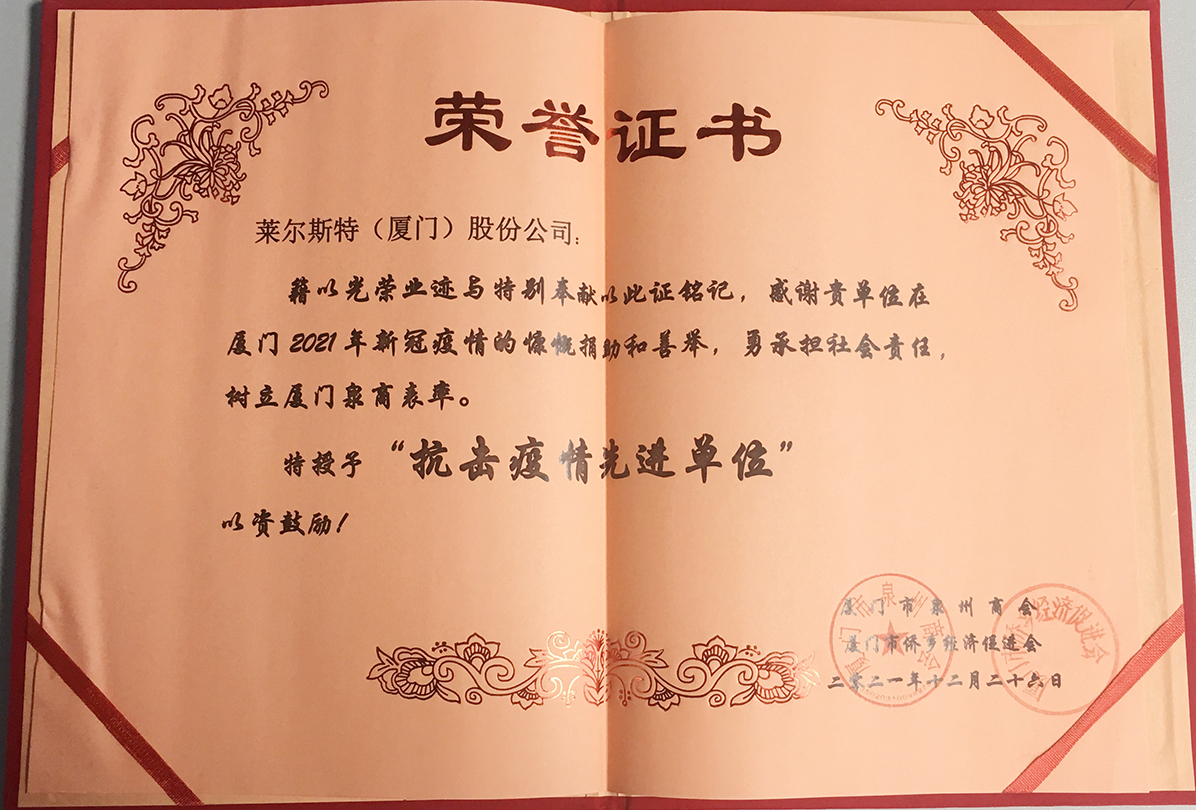 荣誉证书
莱尔斯特（厦门）股份公司：
籍以光荣业迹与特别奉献以此证铭记，感谢贵单位在
厦门2021年新冠疫情的慷慨捐助和善举，勇承担社会责任，
树立厦门泉商表率。
特授予“抗击疫情先进单位”
以资鼓励！
厦门市泉州商会
厦门市侨乡经济促进会
二〇二一年十二月二十六日
厦门市泉州商会
厦门市侨乡经济促进会